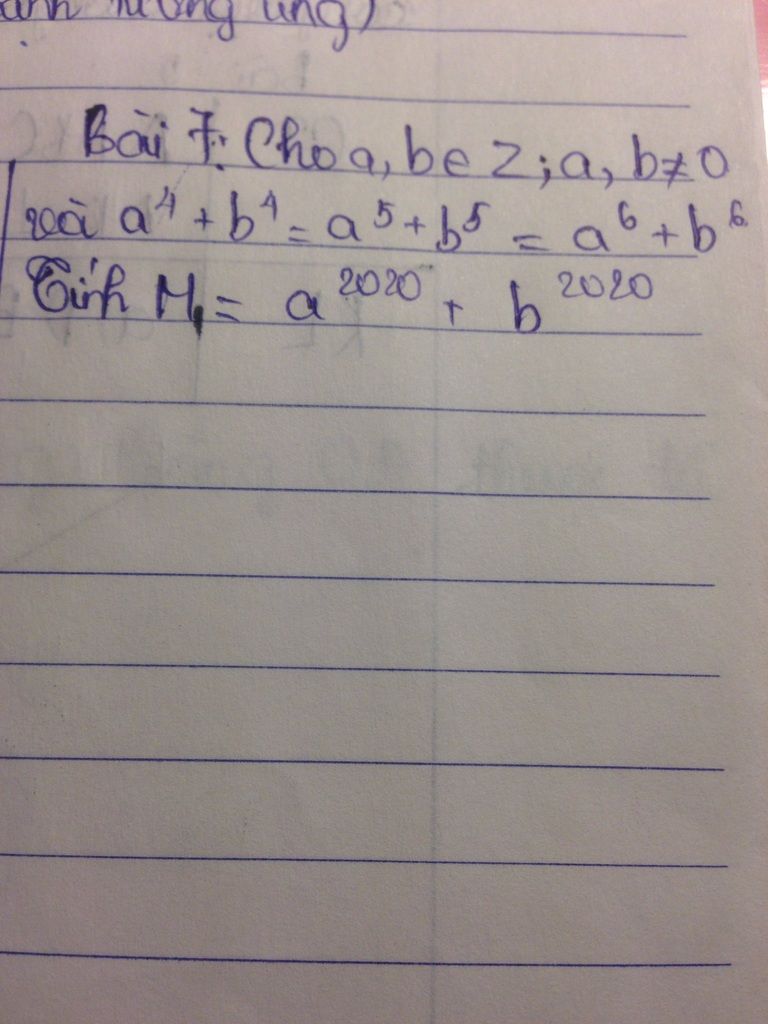 ảnh tương ứng)
Bài 7: Cho a, b ∈ Z; a, b ≠ 0
và a⁴ + b⁴ = a⁵ + b⁵ = a⁶ + b⁶
Tính M = a²⁰²⁰ + b²⁰²⁰